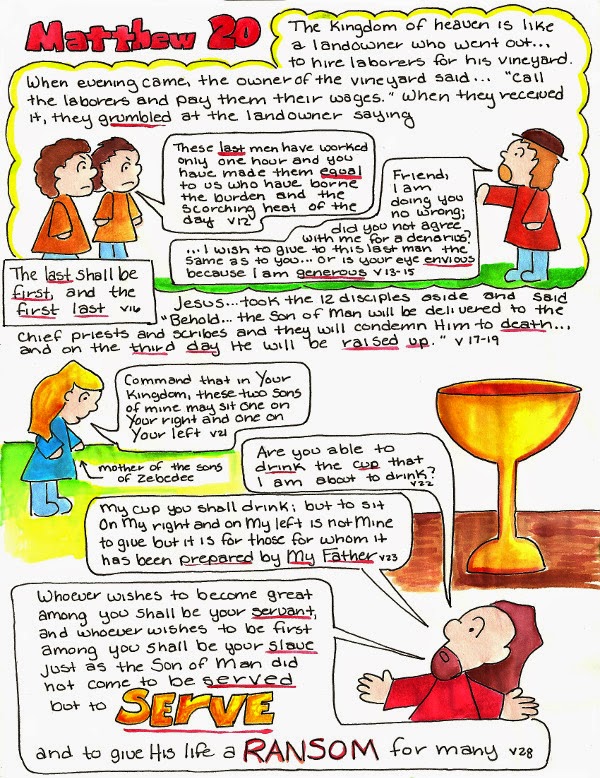 Matthew 20
The Kingdom of heaven is like
a landowner who went out...
to hire laborers for his vineyard.
When evening came, the owner of the vineyard said... "call
the laborers and pay them their wages." When they received
it, they grumbled at the landowner saying
These last men have worked
only one hour and you
have made them equal
to us who have borne
the burden and the
scorching heat of the
day v12
Friend,
I am
doing you
no wrong;
did you not agree
with me for a denarius?
...I wish to give to this last man the
same as to you... or is your eye envious
because I am generous v13-15
The last shall be
first, and the
first last v16
Jesus...took the 12 disciples aside and said
"Behold... the Son of Man will be delivered to the
chief priests and scribes and they will condemn Him to death...
and on the third day He will be raised up." v17-19
Command that in Your
Kingdom, these two sons
of mine may sit one on
Your right and one on
Your left v21
mother of the sons
of Zebedee
Are you able to
drink the cup that
I am about to drink?
v22
My cup you shall drink; but to sit
on My right and on My left is not Mine
to give but it is for those for whom it
has been prepared by My Father v23
Whoever wishes to become great
among you shall be your servant,
and whoever wishes to be first
among you shall be your slave
just as the Son of Man did
not come to be served
but to SERVE
and to give His life a RANSOM for many v28